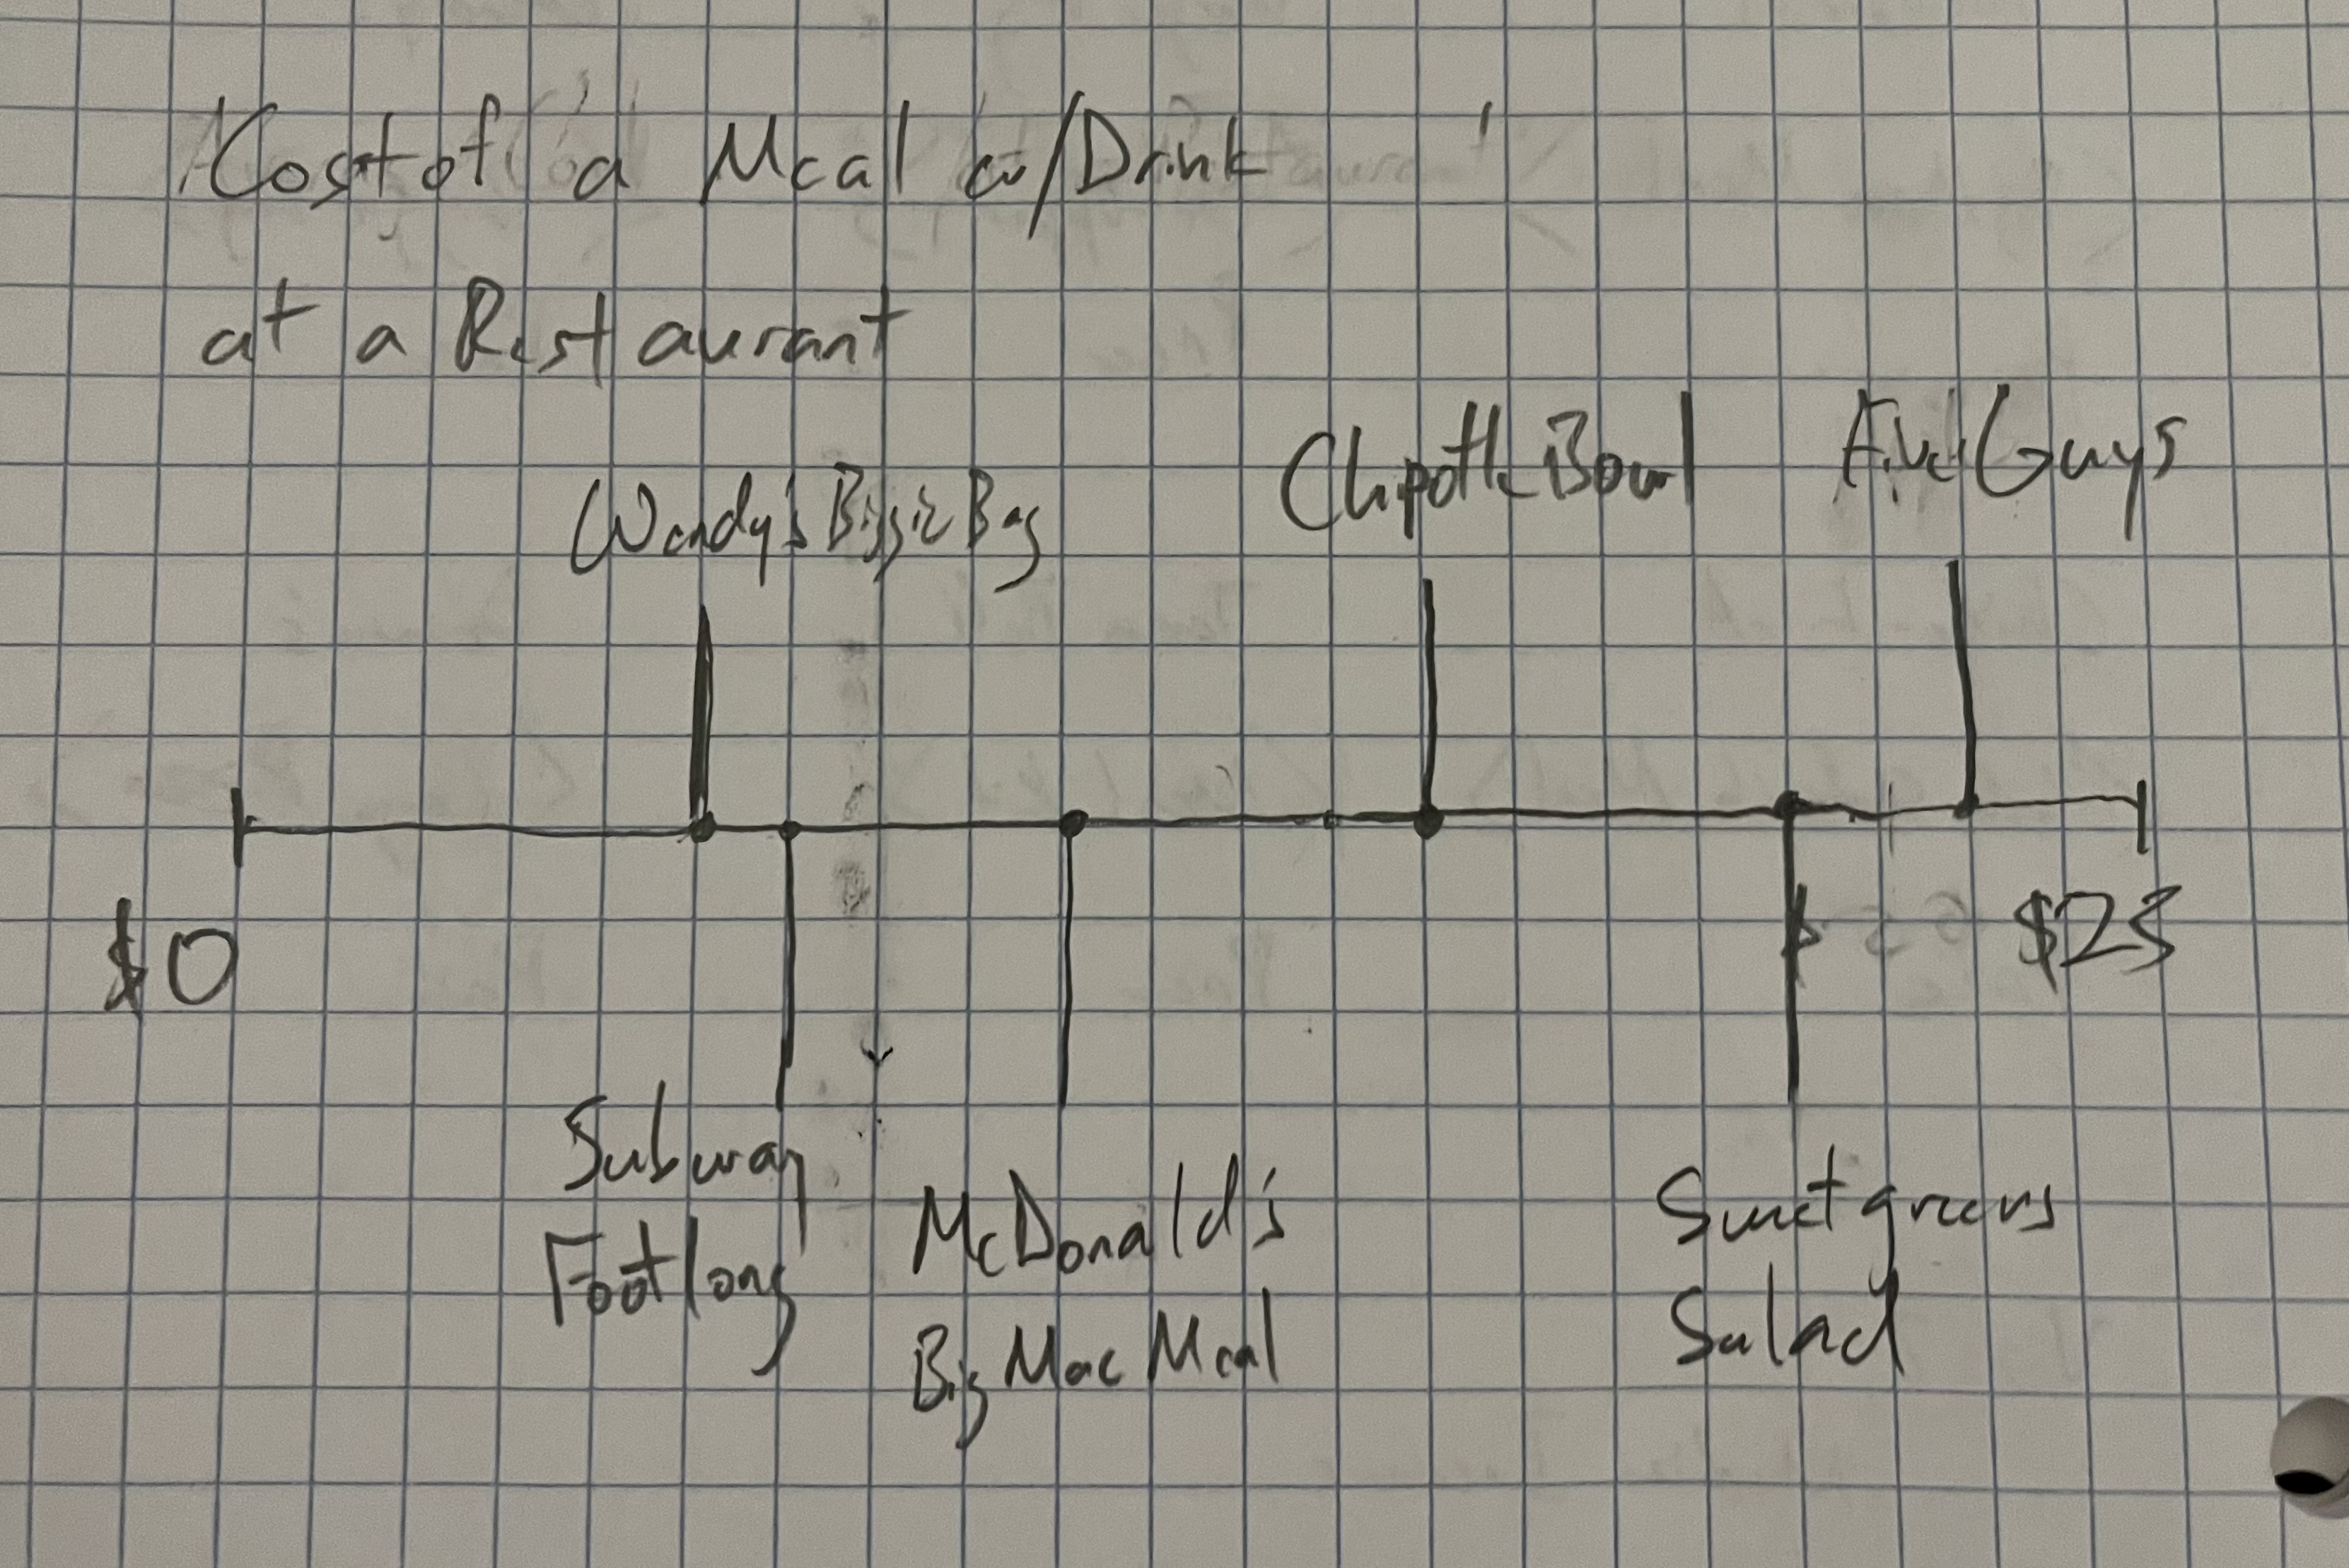 Cost of a Meal w/Drink
at a Restaurant
Wendy's Biggie Bag
Chipotle Bowl
Five Guys
$0
$25
Subway
Footlong
McDonald's
Big Mac Meal
Sweetgreens
Salad